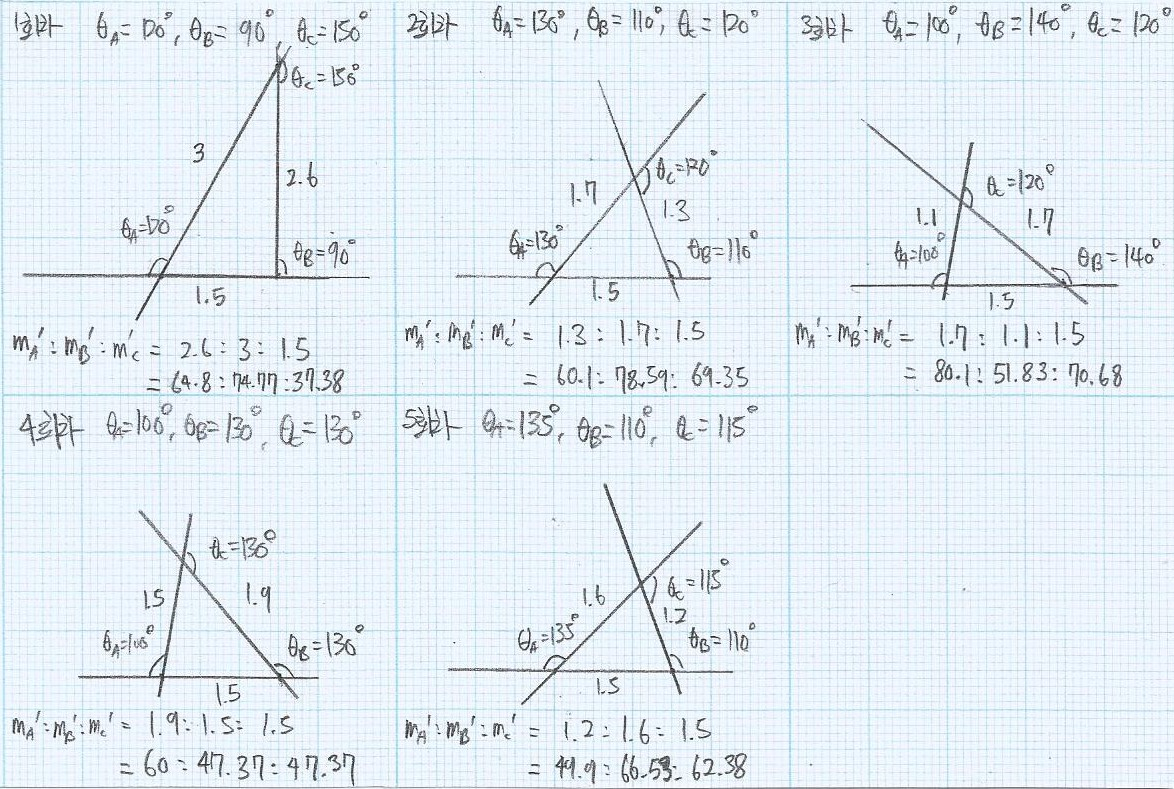 1회차 θA=120°, θB=90°, θC=150°
θC=150°
3
2.6
θA=120°
θB=90°
1.5
mA':mB':mC' = 2.6 : 3 : 1.5
= 64.8 : 74.77 : 37.38
2회차 θA=130°, θB=110°, θC=120°
θC=120°
1.7
1.3
θA=130°
θB=110°
1.5
mA':mB':mC' = 1.3 : 1.7 : 1.5
= 60.1 : 78.59 : 69.35
3회차 θA=100°, θB=140°, θC=120°
θC=120°
1.1
1.7
θA=100°
θB=140°
1.5
mA':mB':mC' = 1.7 : 1.1 : 1.5
= 80.1 : 51.83 : 70.68
4회차 θA=100°, θB=130°, θC=130°
θC=130°
1.5
1.9
θA=100°
θB=130°
1.5
mA':mB':mC' = 1.9 : 1.5 : 1.5
= 60 : 47.37 : 47.37
5회차 θA=135°, θB=110°, θC=115°
θC=115°
1.6
1.2
θA=135°
θB=110°
1.5
mA':mB':mC' = 1.2 : 1.6 : 1.5
= 49.9 : 66.53 : 62.38